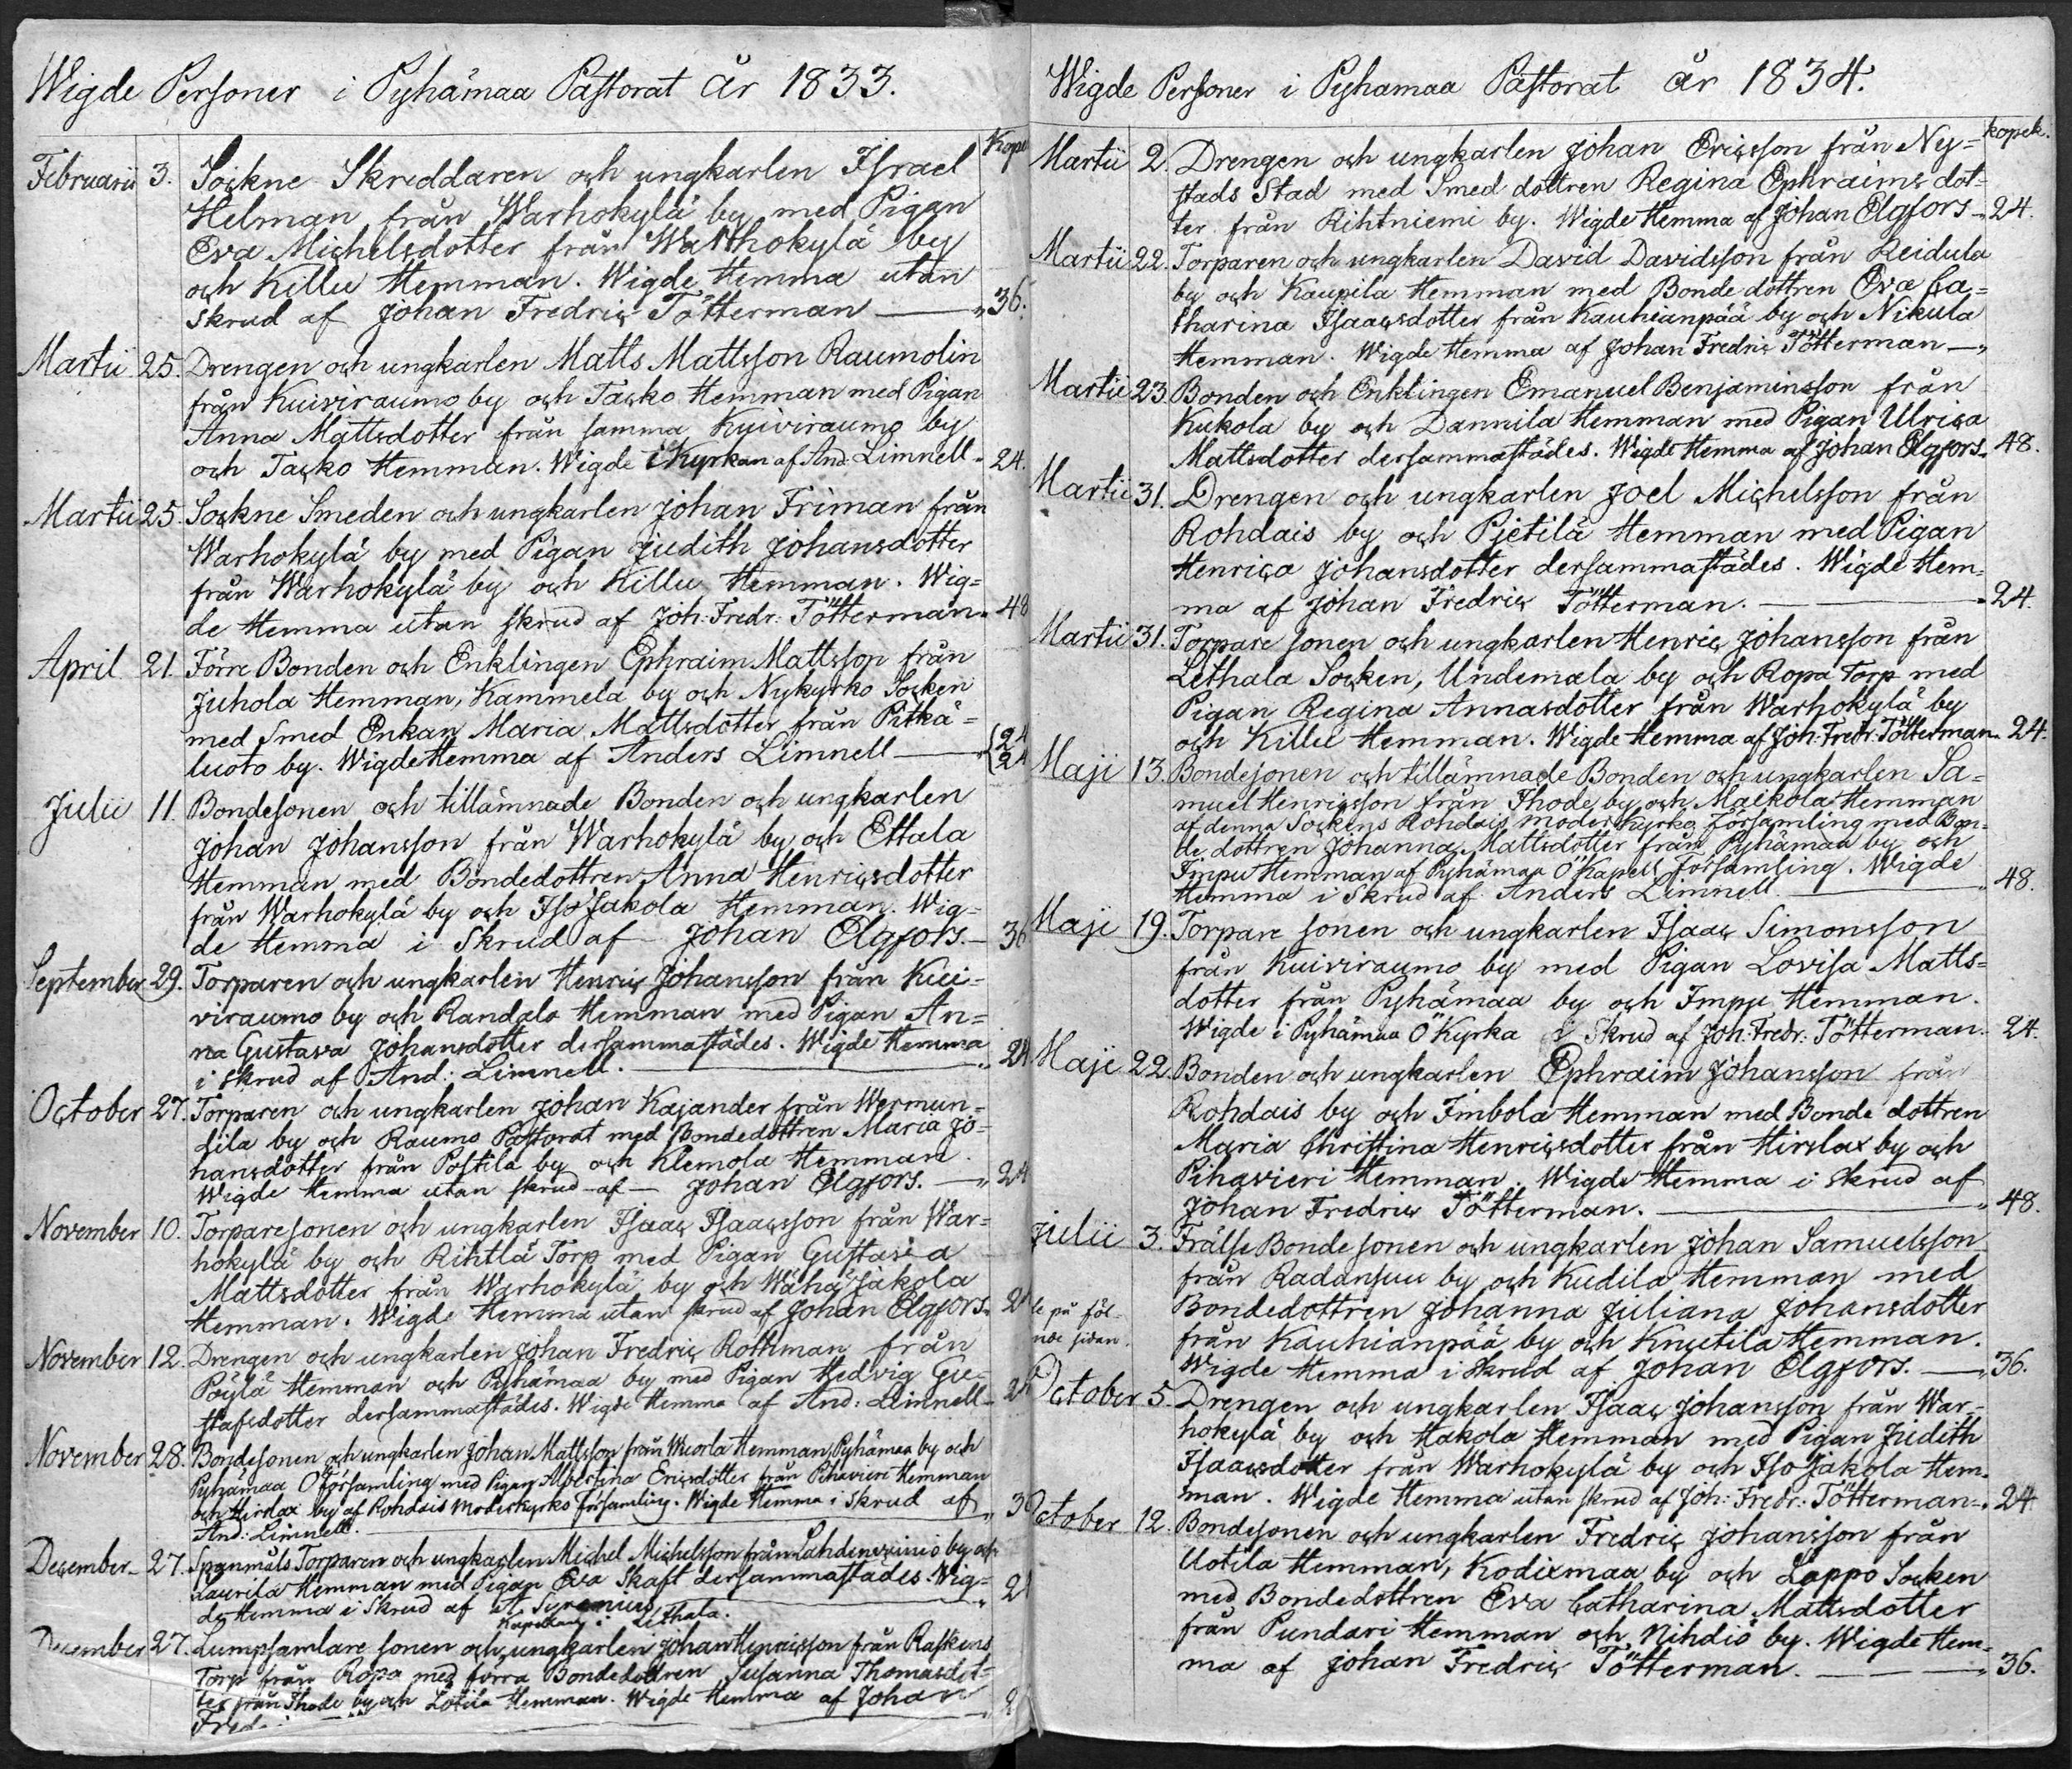 Wigde Personer i Pyhämaa Pastorat År 1833.
Kope
Februarii 3. Sockne Skreddaren och ungkarlen Israel
Helman från Warhokylä by med Pigan
Eva Michelsdotter från Warhokylä by
och Killu Hemman. Wigde Hemma utan
skrud af Johan Fredric Tötterman — „ 36.
Martii 25. Drengen och ungkarlen Matts Mattsson Raumolin
från Kuiviraumo by och Tacko Hemman med Pigan
Anna Mattsdotter från samma Kuiviraumo by
och Tacko Hemman. Wigde i Kyrkan af And: Limnell „ 24.
Martii 25. Sockne Smeden och ungkarlen Johan Friman från
Warhokylä by med Pigan Judith Johansdotter
från Warhokylä by och Killu Hemman. Wig=
de Hemma utan skrud af Joh: Fredr: Tötterman „ 48
April 21. Förre Bonden och Enklingen Ephraim Mattsson från
Juhola Hemman, Kammela by och Nykyrko Socken
med Smed Enkan Maria Mattsdotter från Pitkä=
luoto by. Wigde Hemma af Anders Limnell — „ {24 24
Julii 11. Bondesonen och tillämnade Bonden och ungkarlen
Johan Johansson från Warhokylä by och Ettala
Hemman med Bondedottren Anna Henricsdotter
från Warhokylä by och Iso Jakola Hemman. Wig=
de Hemma i Skrud af Johan Elgfors. — 36
September 29. Torparen och ungkarlen Henric Johansson från Kui=
viraumo by och Randala Hemman med Pigan An=
na Gustava Johansdotter dersammastädes. Wigde Hemma
i skrud af And: Limnell. — „ 24
October 27. Torparen och ungkarlen Johan Kajander från Wermun=
dila by och Raumo Pastorat med Bondedottren Maria Jo=
hansdotter från Postila by och Klemola Hemman.
Wigde Hemma utan skrud af — Johan Elgfors. — „ 24
November 10. Torparesonen och ungkarlen Isaac Isaacsson från War=
hokylä by och Rihtlä Torp med Pigan Gustava
Mattsdotter från Warhokylä by och Wähä Jakola
Hemman. Wigde Hemma utan skrud af Johan Elgfors „ 24
November 12. Drengen och ungkarlen Johan Fredric Rothman från
Pöylä Hemman och Pyhämaa by med Pigan Hedvig Gu=
stafsdotter dersammastädes. Wigde Hemma af And: Limnell — 24
November 28. Bondesonen och ungkarlen Johan Mattsson från Wuorla Hemman, Pyhämaa by och
Pyhämaa Ö församling med Pigan Albertina Ericsdotter från Pihavieri Hemman
och Hirslax by af Rohdais Moderkyrko församling. Wigde Hemma i Skrud af
And: Limnell. — „ 36
December 27. Spanmåls Torparen och ungkarlen Michel Michelsson från Lahdenvainio by och
Laurila Hemman med Pigan Eva Skaft dersammastädes. Wig=
de Hemma i Skrud af — „ 24
Kapellan i Lethala.
December 27. Lumpsamlare sonen och ungkarlen Johan Henricsson från Raskens
Torp från Ropa med forra Bondedottren Susanna Thomasdot=
ter från Ihode by och Lotila Hemman. Wigde Hemma af Johan
Fred
Wigde Personer i Pyhamaa Pastorat år 1834.
kopek.
Martii 2. Drengen och ungkarlen Johan Ericsson från Ny=
stads Stad med Smed dottren Regina Ephraims dot=
ter från Rihtniemi by. Wigde Hemma af Johan Elgfors — 24.
Martii 22. Torparen och ungkarlen David Davidsson från Reidula
by och Kaupila Hemman med Bonde dottren Eva Ca=
tharina Isaacsdotter från Kauhianpää by och Nikula
Hemman. Wigde Hemma af Johan Fredric Tötterman — „
Martii 23. Bonden och Enklingen Emanuel Benjaminsson från
Kukola by och Dannila Hemman med Pigan Ulrica
Mattsdotter dersammastädes. Wigde Hemma af Johan Elgfors. 48.
Martii 31. Drengen och ungkarlen Joel Michelsson från
Rohdais by och Pjetilä Hemman med Pigan
Henrica Johansdotter dersammastädes. Wigde Hem=
ma af Johan Fredric Tötterman. — „ 24.
Martii 31. Torpare sonen och ungkarlen Henric Johansson från
Lethala Socken, Undemala by och Ropa Torp med
Pigan Regina Annasdotter från Warhokylä by
och Killu Hemman. Wigde Hemma af Joh: Fredr: Tötterman „ 24.
Maji 13. Bondesonen och tillämnade Bonden och ungkarlen Sa=
muel Henricsson från Ihode by och Maikola Hemman
af denna Sockens Rohdais moder Kyrko församling med Bon=
de dottren Johanna Mattsdotter från Pyhämaa by och
Impu Hemman af Pyhämaa Ö Kapells Församling. Wigde
Hemma i Skrud af Anders Limnell — „ 48.
Maji 19. Torpare sonen och ungkarlen Isaac Simonsson
från Kuiviraumo by med Pigan Lovisa Matts=
dotter från Pyhämaa by och Impu Hemman.
Wigde i Pyhämaa Ö Kyrka Skrud af Joh: Fredr: Tötterman. 24.
Maji 22. Bonden och ungkarlen Ephraim Johansson från
Rohdais by och Simbola Hemman med Bonde dottren
Maria Christina Henricsdotter från Hirslax by och
Pihavieri Hemman. Wigde Hemma i skrud af
Johan Fredric Tötterman. — „ 48.
Julii 3. Frälse Bonde sonen och ungkarlen Johan Samuelsson
från Radansuu by och Kudila Hemman med
le på föl= Bondedottren Johanna Juliana Johansdotter
nde sidan. från Kauhianpää by och Knutila Hemman.
Wigde Hemma i Skrud af Johan Elgfors. — „ 36.
October 5. Drengen och ungkarlen Isaac Johansson från War=
hokylä by och Hakola Hemman med Pigan Judith
Isaacsdotter från Warhokylä by och Iso Jakola Hem=
man. Wigde Hemma utan skrud af Joh: Fredr: Tötterman — „ 24.
October 12. Bondesonen och ungkarlen Fredric Johansson från
Uotila Hemman, Kodixmaa by och Lappo Socken
med Bondedottren Eva Catharina Mattsdotter
från Pundari Hemman och Nihdiö by. Wigde Hem=
ma af Johan Fredric Tötterman. — „ 36.